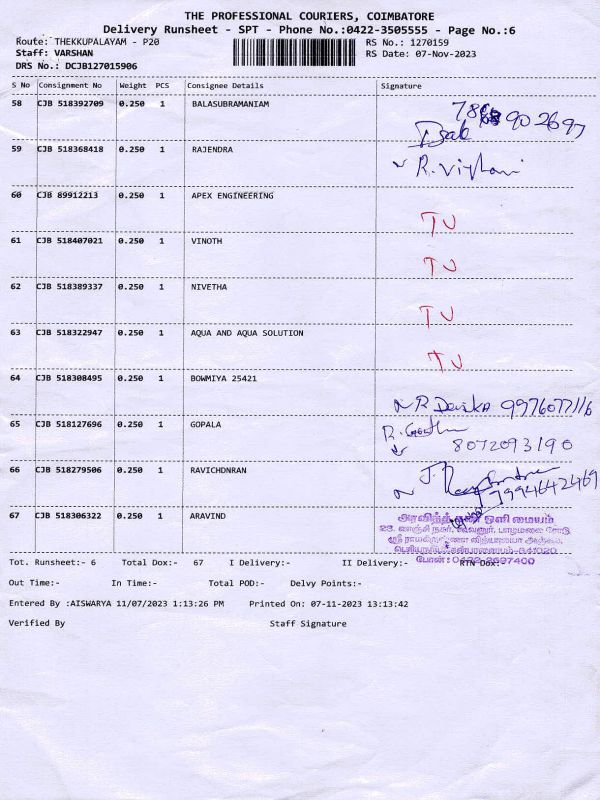 THE PROFESSIONAL COURIERS, COIMBATORE
Delivery Runsheet - SPT - Phone No.:0422-3505555 - Page No.:6
Route: THEKKUPALAYAM - P20 RS No.: 1270159
Staff: VARSHAN RS Date: 07-Nov-2023
DRS No.: DCJB127015906
S No Consignment No Weight PCS Consignee Details Signature
58 CJB 518392709 0.250 1 BALASUBRAMANIAM
902697
59 CJB 518368418 0.250 1 RAJENDRA
R.
60 CJB 89912213 0.250 1 APEX ENGINEERING
TU
61 CJB 518407021 0.250 1 VINOTH
TU
62 CJB 518389337 0.250 1 NIVETHA
TU
63 CJB 518322947 0.250 1 AQUA AND AQUA SOLUTION
TU
64 CJB 518308495 0.250 1 BOWMIYA 25421
R
65 CJB 518127696 0.250 1 GOPALA
R.
8072093190
66 CJB 518279506 0.250 1 RAVICHDNRAN
J.
67 CJB 518306322 0.250 1 ARAVIND
அரவிந்த் ஒளி மையம்
போன்
Tot. Runsheet:- 6 Total Dox:- 67 I Delivery:- II Delivery:- RTN Dox:-
Out Time:- In Time:- Total POD:- Delvy Points:-
Entered By :AISWARYA 11/07/2023 1:13:26 PM Printed On: 07-11-2023 13:13:42
Verified By Staff Signature